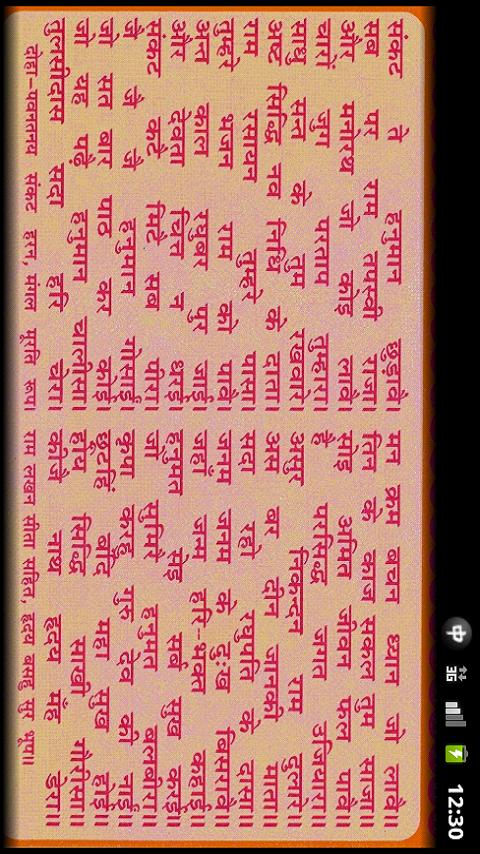 中 3G 12:30
संकट ते हनुमान छुड़ावै। मन क्रम वचन ध्यान जो लावै॥
सब पर राम तपस्वी राजा। तिन के काज सकल तुम साजा॥
और मनोरथ जो कोइ लावै। सोइ अमित जीवन फल पावै॥
चारों जुग परताप तुम्हारा। है परसिद्ध जगत उजियारा॥
साधु सन्त के तुम रखवारे। असुर निकन्दन राम दुलारे॥
अष्ट सिद्धि नव निधि के दाता। अस बर दीन जानकी माता॥
राम रसायन तुम्हरे पासा। सदा रहो रघुपति के दासा॥
तुम्हरे भजन राम को पावै। जनम जनम के दुःख बिसरावै॥
अन्त काल रघुबर पुर जाई। जहाँ जन्म हरि-भक्त कहाई॥
और देवता चित्त न धरई। हनुमत सेइ सर्व सुख करई॥
संकट कटै मिटै सब पीरा। जो सुमिरै हनुमत बलबीरा॥
जै जै जै हनुमान गोसाईं। कृपा करहु गुरु देव की नाईं॥
जो सत बार पाठ कर कोई। छूटहिं बंदि महा सुख होई॥
जो यह पढ़ै हनुमान चालीसा। होय सिद्धि साखी गौरीसा॥
तुलसीदास सदा हरि चेरा। कीजै नाथ हृदय मँह डेरा॥
दोहा-पवनतनय संकट हरन, मंगल मूरति रूप। राम लखन सीता सहित, हृदय बसहु सुर भूप॥